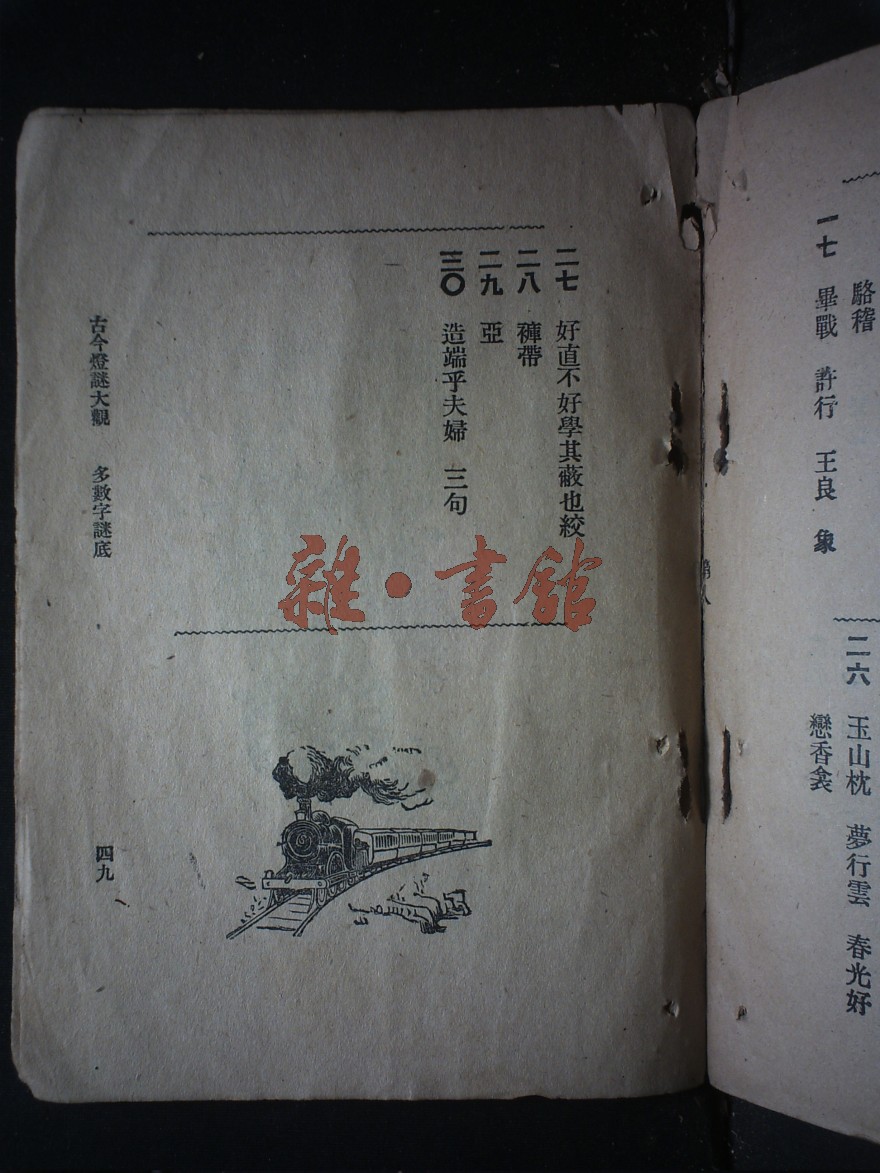 一七　畢戰　許行　王良　象
駱稽
二六　玉山枕　夢行雲　春光好
戀香衾
二七　好直不好學其蔽也絞
二八　褲帶
二九　亞
三〇　造端乎夫婦　三句
古今燈謎大觀　多數字謎底
四九
雜·書館